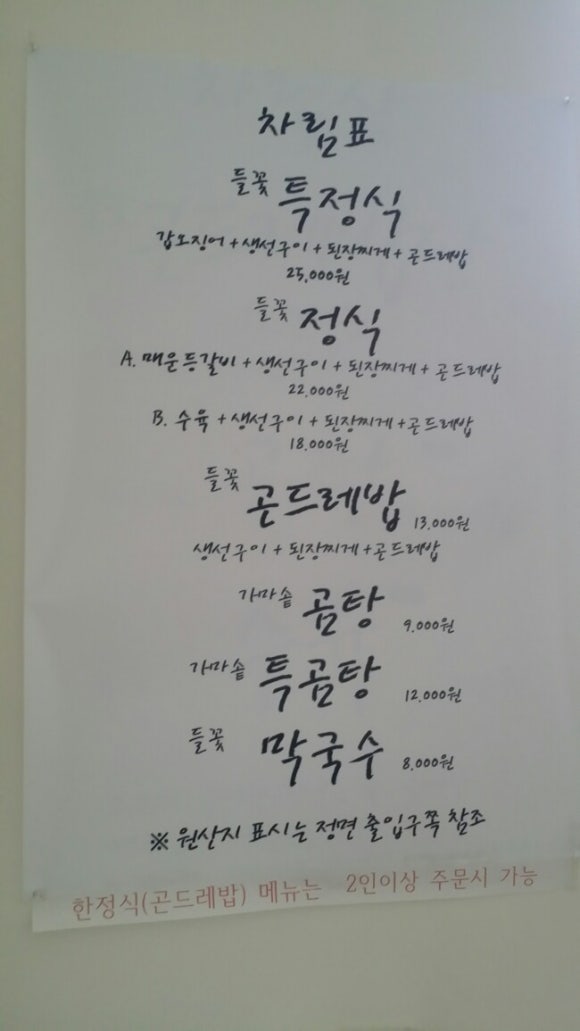 차림표
들꽃 특정식
갑오징어 + 생선구이 + 된장찌게 + 곤드레밥
25,000원
들꽃 정식
A. 매운등갈비 + 생선구이 + 된장찌게 + 곤드레밥
22,000원
B. 수육 + 생선구이 + 된장찌게 + 곤드레밥
18,000원
들꽃 곤드레밥 13,000원
생선구이 + 된장찌게 + 곤드레밥
가마솥 곰탕 9,000원
가마솥 특곰탕 12,000원
들꽃 막국수 8,000원
※ 원산지 표시는 정면 출입구쪽 참조
한정식(곤드레밥) 메뉴는 2인이상 주문시 가능